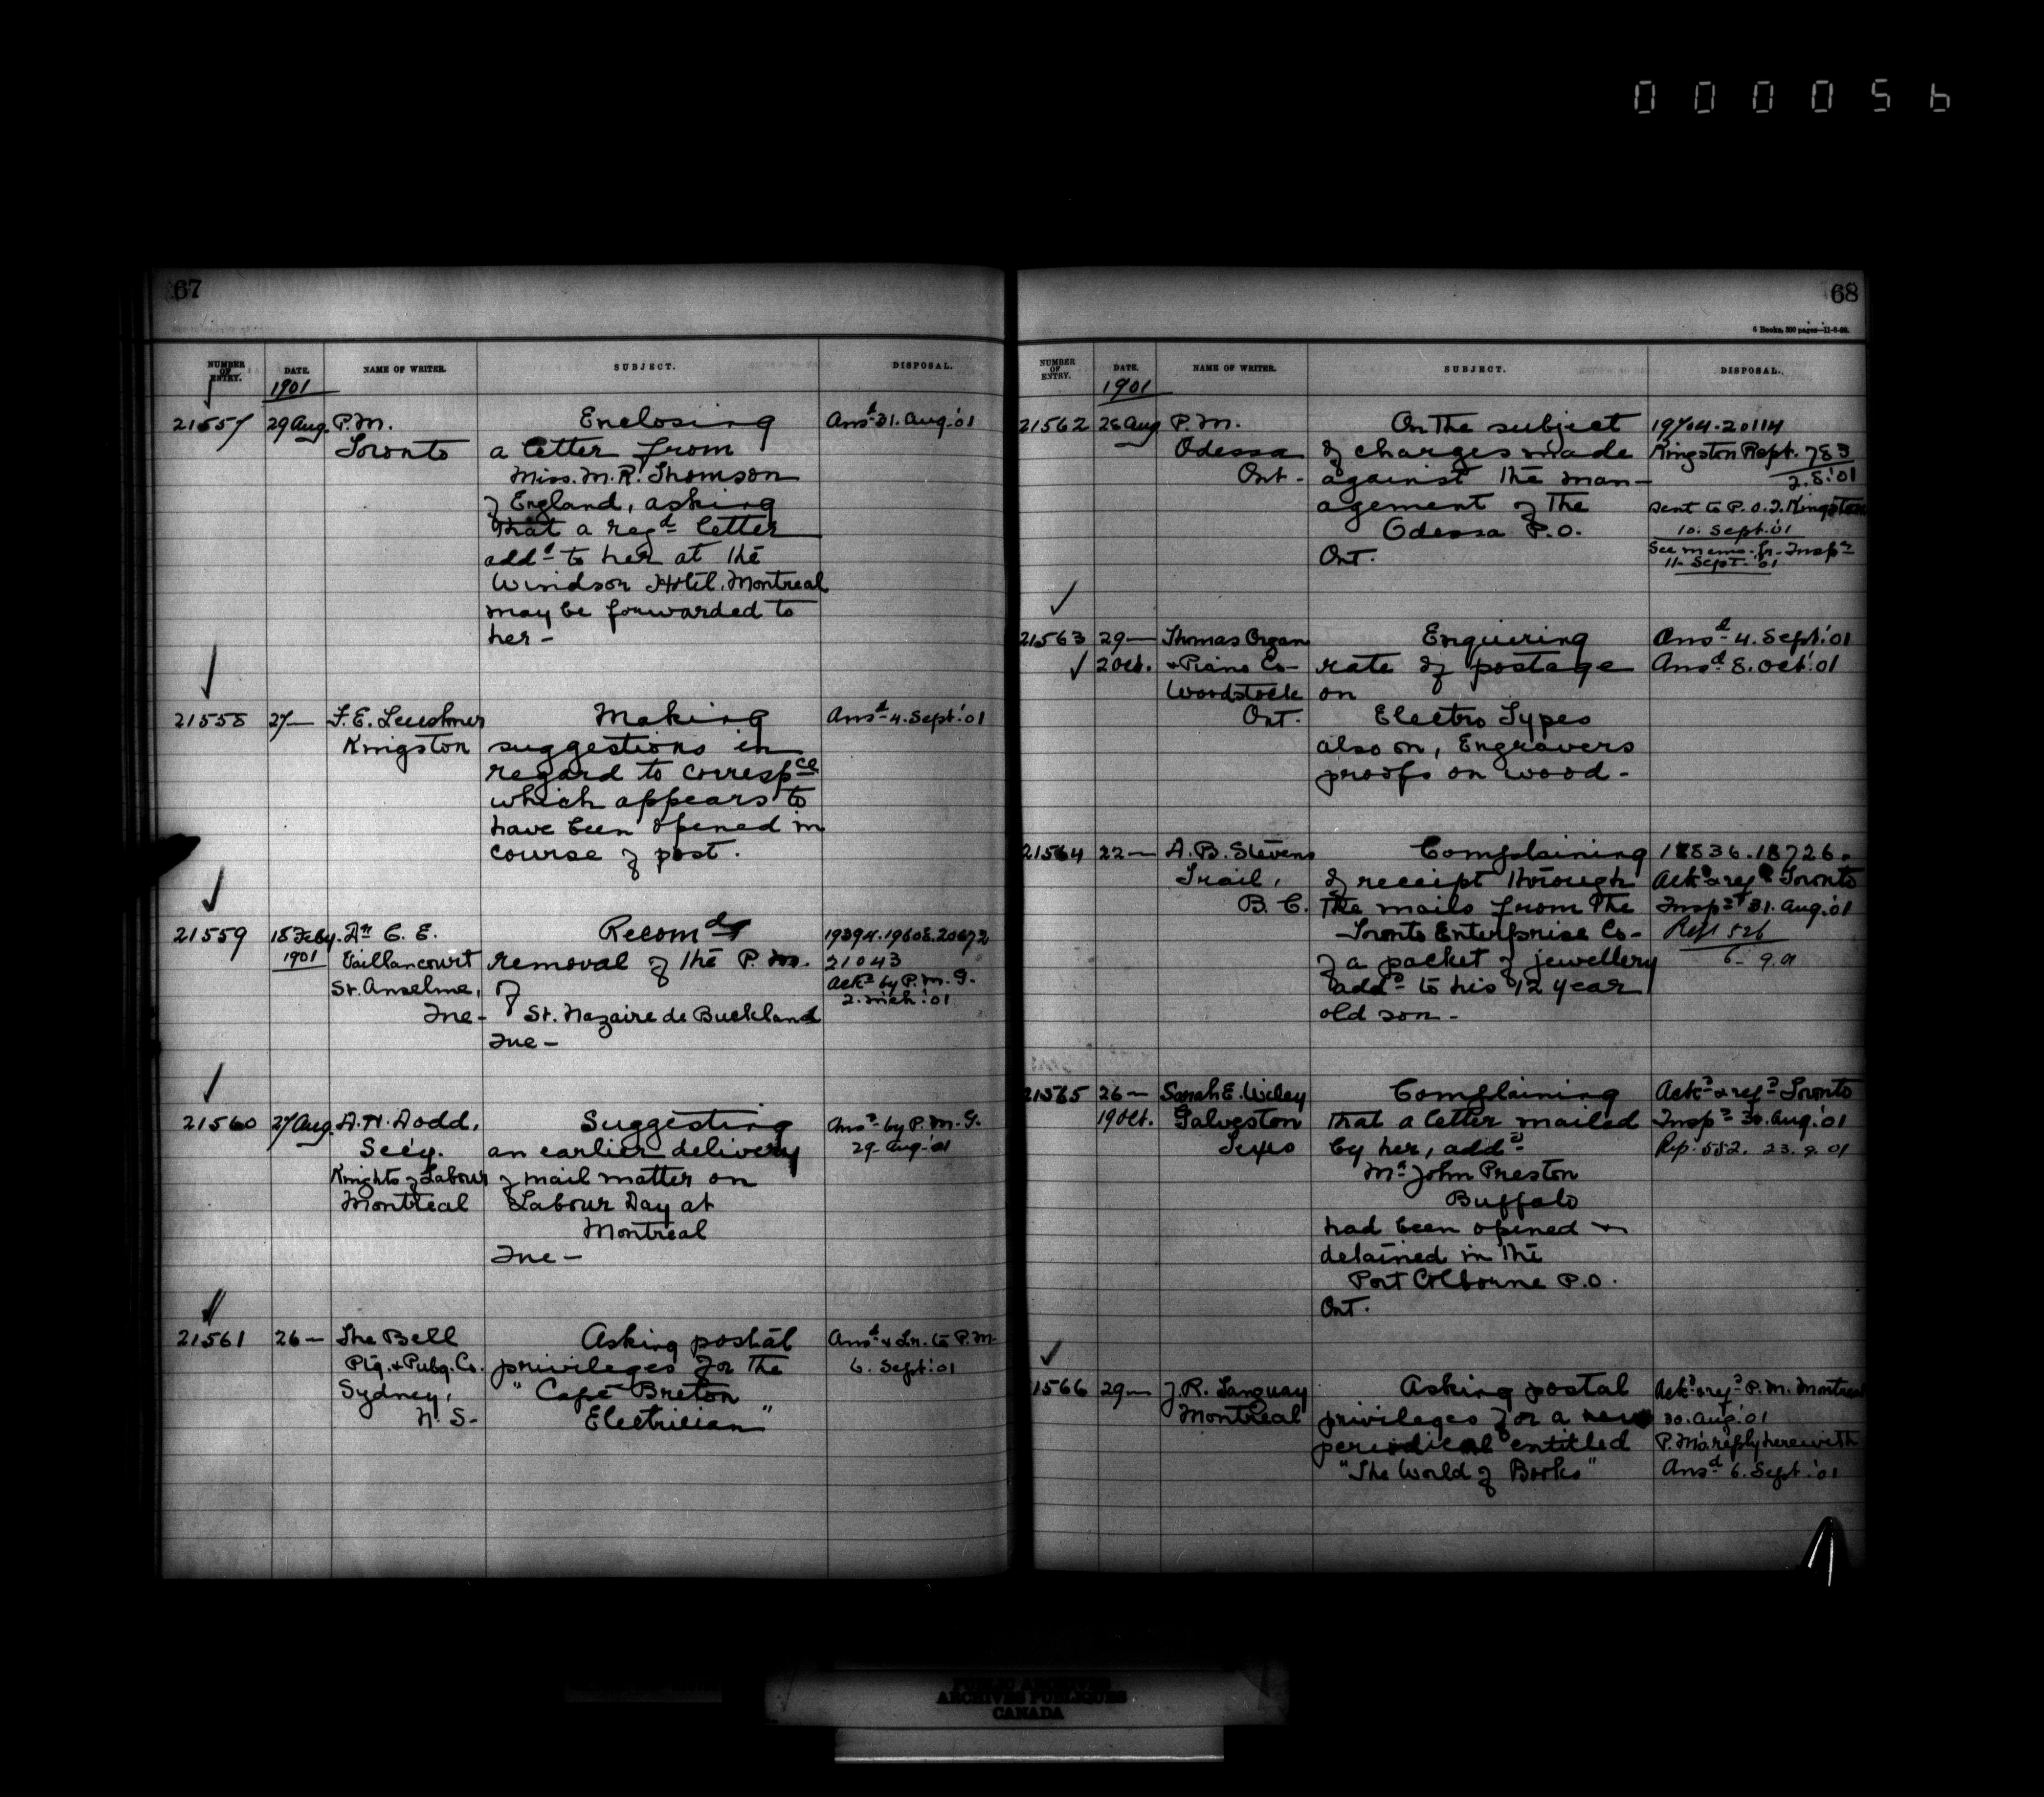 000056
67
NUMBER OF ENTRY. DATE. NAME OF WRITER. SUBJECT. DISPOSAL.
1901
21557 29 Aug. P.M. Enclosing Ansd 31. Aug. '01
Toronto a letter from
Miss. M. R. Thomson
of England, asking
that a regd letter
addd to her at the
Windsor Hotel, Montreal
may be forwarded to
her -
21558 27 — F. E. Making Ansd 4. Sept. '01
Kingston suggestions in
regard to correspce
which appears to
have been opened in
course of post.
21559 18 Feby. Dr C. E. Recomdg 19394. 19608. 20672
1901 Vaillancourt removal of the P. M. 21043
St. Anselme, of Ackd by P. M. G.
Que - St. Nazaire de Buckland 2. Mch. '01
Que -
21560 27 Aug. A. H. Dodd, Suggesting Ansd by P. M. G.
Secy. an earlier delivery 29. Aug. '01
Knights of Labour of mail matter on
Montreal Labour Day at
Montreal
Que -
21561 26 — The Bell Asking postal Ansd & Lr. to P.M.
Ptg. & Pubg. Co. privileges for the 6. Sept. '01
Sydney, " Cape Breton
N. S - Electrician "
68
6 Books, 300 pages—11-6-98.
NUMBER OF ENTRY. DATE. NAME OF WRITER. SUBJECT. DISPOSAL.
1901
21562 26 Aug P. M. On the subject 19704. 20114
Odessa of charges made Kingston Rept. 783
Ont - against the man- 2. 8. '01
agement of the sent to P. O. I. Kingston
Odessa P. O. 10. Sept. '01
Ont. See memo. fr. Inspr
11. Sept. '01
21563 29 — Thomas Organ Enquiring Ansd 4. Sept. '01
2 Oct. & Piano Co - rate of postage Ansd 8. Oct. '01
Woodstock on
Ont. Electro Types
also on, Engravers
proofs on wood -
21564 22 — A. B. Stevens Complaining 18836. 18726.
Trail, of receipt through Ackd & refd Toronto
B. C. the mails from the Inspr 31. Aug. '01
Toronto Enterprise Co - Rept 526
of a packet of jewellery 6. 9. 01
addd to his 12 year
old son -
21565 26 — Sarah E. Complaining Ackd & refd Toronto
19 Oct. Galveston that a letter mailed Inspr 30. Aug. '01
Texas by her, addd Rep. 552. 23. 9. 01
Mr John Preston
Buffalo
had been opened &
detained in the
Port Colborne P. O.
Ont.
1566 29 — J. R. Tanguay Asking postal Ackd & refd P. M. Montreal
Montreal privileges for a new 30. Aug. '01
periodical entitled P. M's reply herewith
"The World of Books" Ansd 6. Sept. '01
PUBLIC ARCHIVES
ARCHIVES PUBLIQUES
CANADA